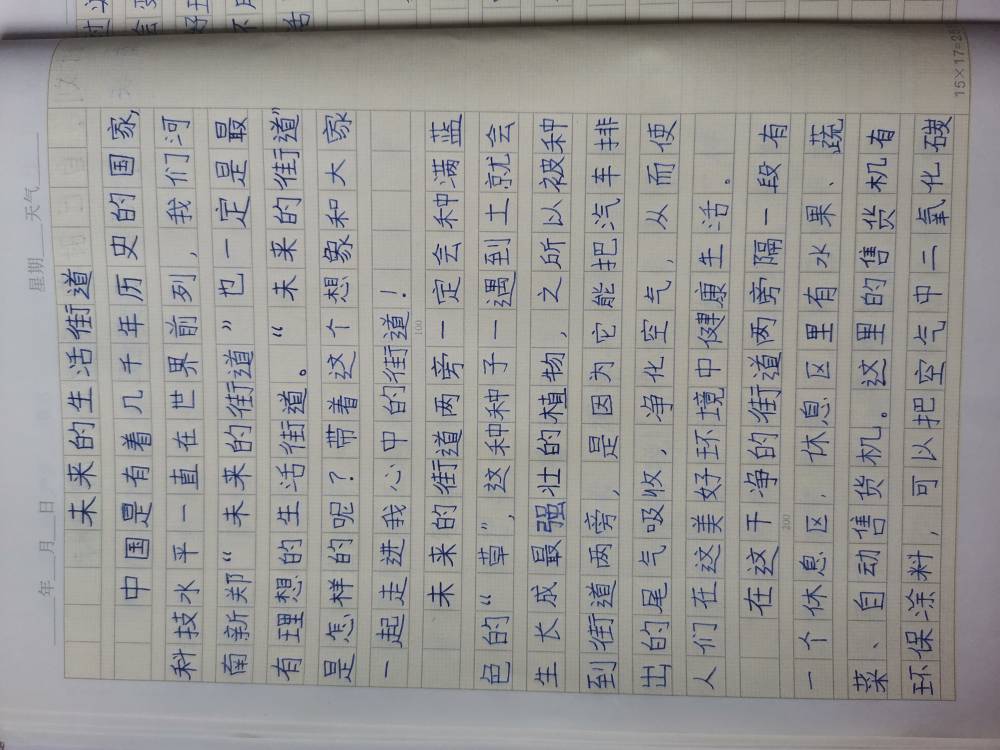 年 月 日 星期 天气
未来的生活街道
中国是有着几千年历史的国家,
科技水平一直在世界前列,我们河
南新郑“未来的街道”也一定是最
有理想的生活街道。“未来的街道”
是怎样的呢?带着这个想象和大家
一起走进我心中的街道!
100
未来的街道两旁一定会种满蓝
色的“草”,这种种子一遇到土就会
生长成最强壮的植物,之所以被种
到街道两旁,是因为它能把汽车排
出的尾气吸收,净化空气,从而使
人们在这美好环境中健康生活。
在这干净的街道两旁隔一段有
200
一个休息区,休息区里有水果、蔬
菜、自动售货机。这里的售货机有
环保涂料,可以把空气中二氧化碳
15×17=255